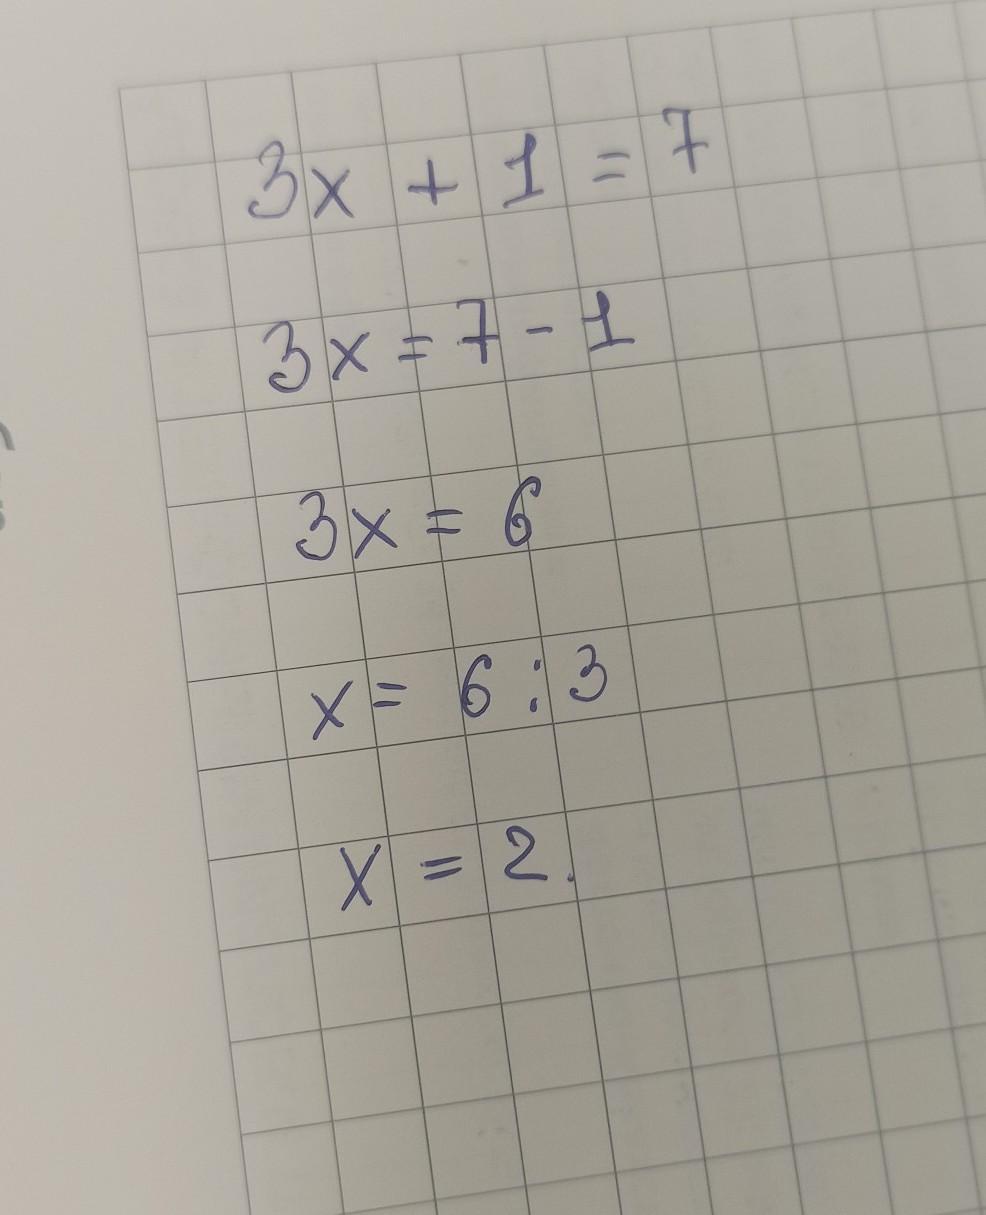 3x + 1 = 7
3x = 7 - 1
3x = 6
x = 6 : 3
x = 2.